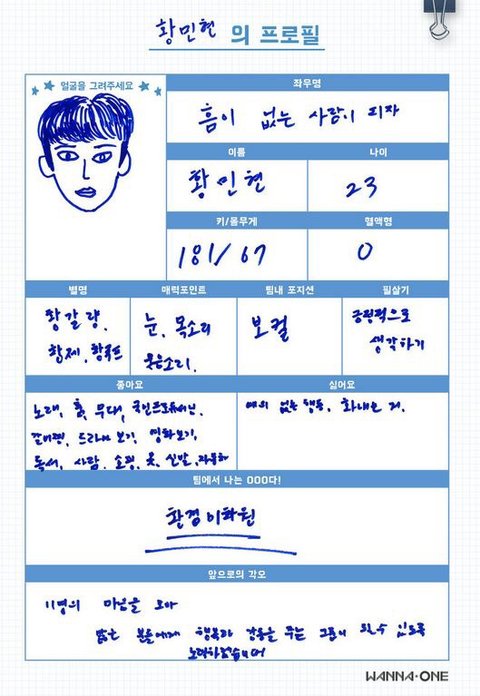 황민현 의 프로필
얼굴을 그려주세요
좌우명
흠이 없는 사람이 되자
이름
나이
황민현
23
키/몸무게
혈액형
181/67
O
별명
매력포인트
팀내 포지션
필살기
황갈량,
황제, 황
눈, 목소리
웃음소리.
보컬
긍정적으로
생각하기
좋아요
싫어요
노래, 춤, 무대, 국민프로듀서님,
드라마 보기, 영화보기,
독서, 사람, 쇼핑, 옷, 신발,
예의 없는 행동, 화내는 거.
팀에서 나는 OOO다!
환경미화원
앞으로의 각오
11명의 마음을 모아
많은 분들에게 행복과 감동을 주는 그룹이 될 수 있도록
노력하겠습니다
WANNA·ONE